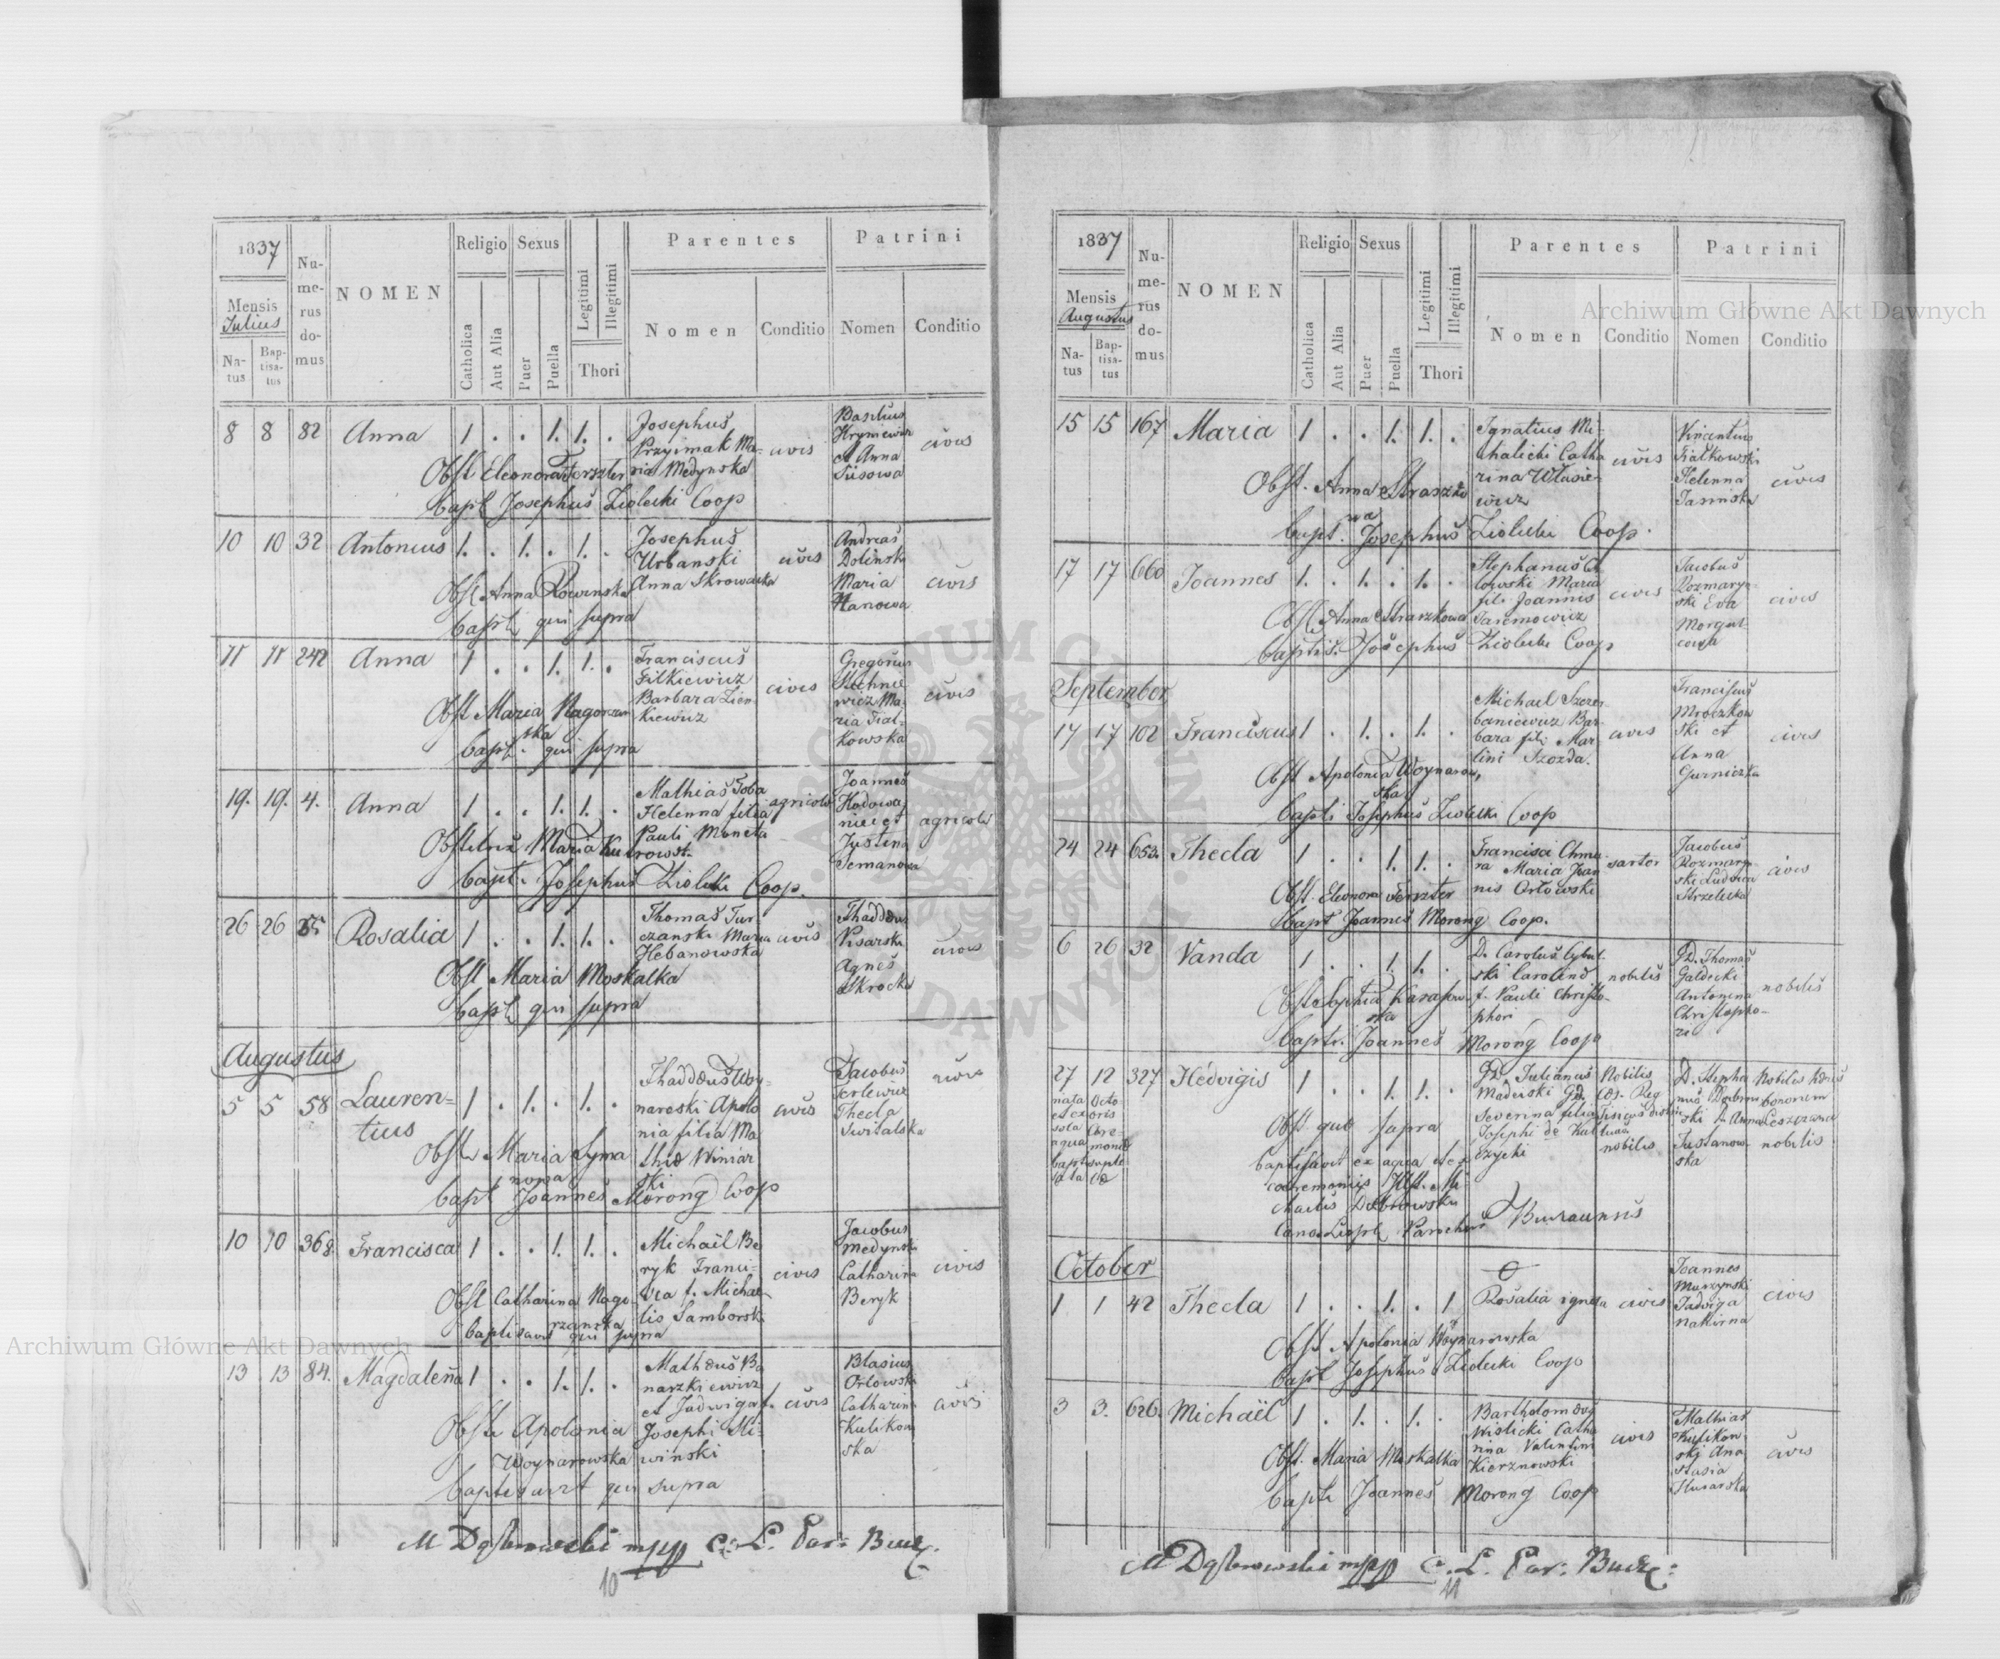 1837
Mensis
Julius
Natus
Baptisatus
Numerus domus
NOMEN
Religio
Catholica
Aut Alia
Sexus
Puer
Puella
Legitimi
Illegitimi
Thori
Parentes
Nomen
Conditio
Patrini
Nomen
Conditio
8 8 82 Anna 1 . . 1. 1. .
Josephus
Przyimak Ma-
ria Medynska
civis
Basilius
Hryniewicz
et Anna
civis
Obst Eleonora Ferszter
bapt Josephus Ziolecki Coop
10 10 32 Antonius 1. . 1. . 1. .
Josephus
Urbanski
Anna Skrowacka
civis
Andreas
Dolinski
Maria
Hanowa
civis
Obst Anna Rowinska
bapt qui supra
11 11 242 Anna 1 . . 1. 1. .
Franciscus
Filkiewicz
Barbara Zien-
kiewicz
civis
Gregorius
wicz Ma-
ria Fial-
kowska
civis
Obst Maria Nagorzan
ska
bapt. qui supra
19. 19. 4. Anna 1 . . 1. 1. .
Mathias Soba
Helenna filia
Pauli Moneta
agricola
Joannes
et
Justina
Semanowa
agricola
Bapt. Josephus Ziolecki Coop.
26 26 Rosalia 1 . . 1. 1. .
Thomas Tur-
czanski Maria
Hebanowska
civis
Thaddeus
Pisarski
Agnes
Skrocka
civis
Obst Maria Moskalka
bapt qui supra
Augustus
5 5 58 Lauren=
tius 1 . 1. . 1. .
Thaddeus Woy-
naroski Apolo
nia filia Ma
thia Winiar
ski
civis
Jacobus
Ferlewicz
Thecla
Switalska
civis
Obst Maria Syma
nowa
bapt Joannes Morong Coop
10 10 368 Francisca 1 . . 1. 1. .
Michaël Be
ryk Franci-
sca f. Michae-
lis Samborsk
civis
Jacobus
Medynski
Catharina
Beryk
civis
Obst Catharina Nago-
rzanska
baptisavit qui supra
13 13 84. Magdalena 1 . . 1. 1. .
Matheus Ba
narzkiewicz
et Jadwiga f.
Josephi Sli-
winski
civis
Blasius
Orlowski
Catharina
Kulikow
ska
civis
Obst Apolonia
Woynarowska
baptisavit qui supra
M Dąbrowski mpp C. L. Par: Bucz.
10
1837
Mensis
Augustus
Natus
Baptisatus
Numerus domus
NOMEN
Religio
Catholica
Aut Alia
Sexus
Puer
Puella
Legitimi
Illegitimi
Thori
Parentes
Nomen
Conditio
Patrini
Nomen
Conditio
15 15 167 Maria 1 . . 1. 1. .
Ignatius Mi-
chalicki Catha
rina Wlasie-
wicz
civis
Vincentius
Fialkowski
Helenna
Jasinska
civis
Obst. Anna Straszko
wa
bapt. Josephus Ziolecki Coop.
17 17 660 Joannes 1. . 1. . 1. .
Stephanus
Maria
fil. Joannis
Jaremowicz
civis
Jacobus
Rozmaryn-
ski Eva
Morgul-
cowa
civis
Obst. Anna Straszkowa
baptis. Josephus Ziolecki Coop
September
17 17 102 Franciscus 1 . 1. . 1. .
Michael Szczer-
baniewicz Bar-
bara fili Mar-
tini Szozda.
civis
Franciscus
Mroczkow
ski et
Anna
Gurniczka
civis
Obst Apolonia Woynarow
ska
bapti Josephus Ziolecki Coop
24 24 653. Thecla 1 . . 1. 1. .
Francisci Chmu
ra Maria Joan
nis Orlowski
sartor
Jacobus
Rozmaryn-
ski Ludvica
Strzelecka
civis
Obst. Eleonora Ferszter
bapt Joannes Morong Coop.
6 26 32 Vanda 1 . . 1. 1. .
D. Carolus Cybul-
ski Carolina
f. Pauli Christo-
phori
nobilis
GD. Thomas
Galdecki
Antonina
Christopho-
ri
nobilis
Obst Sophia Karasow-
ska
bapti. Joannes Morong Coop
27 12 327 Hedvigis 1 . . 1. 1. .
nata
et ex
sola
aqua
bapti
sata
Octo-
bris
Cere-
moniis
suple
ta
GD. Julianus
Maderski GD.
Severina filia
Josephi de Kal
czycki
Nobilis
nobilis
D. Stepha
nus
ski & Anna
Justanow-
ska
nobilis
Obst quae supra
baptisavit ex aqua et ex
ceremoniis Illst. Mi-
chaelis Dabrowski
Cano. Leopl. Parochus Buczacensis
October
1 1 42 Thecla 1 . . 1. . 1
Rosalia ignota
civis
Joannes
Murzynski
Jadviga
Nakirna
civis
Obst Apolonia Woynarowska
bapt Josephus Ziolecki Coop
3 3. 626. Michaël 1 . 1. . 1. .
Bartholomeus
Wislicki Catha
rina Valentini
Kierznowski
civis
Mathias
Kulikow-
ski Ana
stasia
Husarska
civis
Obst. Maria Moskalka
bapti Joannes Morong Coop
M Dąbrowski mpp C. L. Par: Bucz:
11
Archiwum Główne Akt Dawnych
Archiwum Główne Akt Dawnych
ARCHIWUM GŁÓWNE AKT DAWNYCH